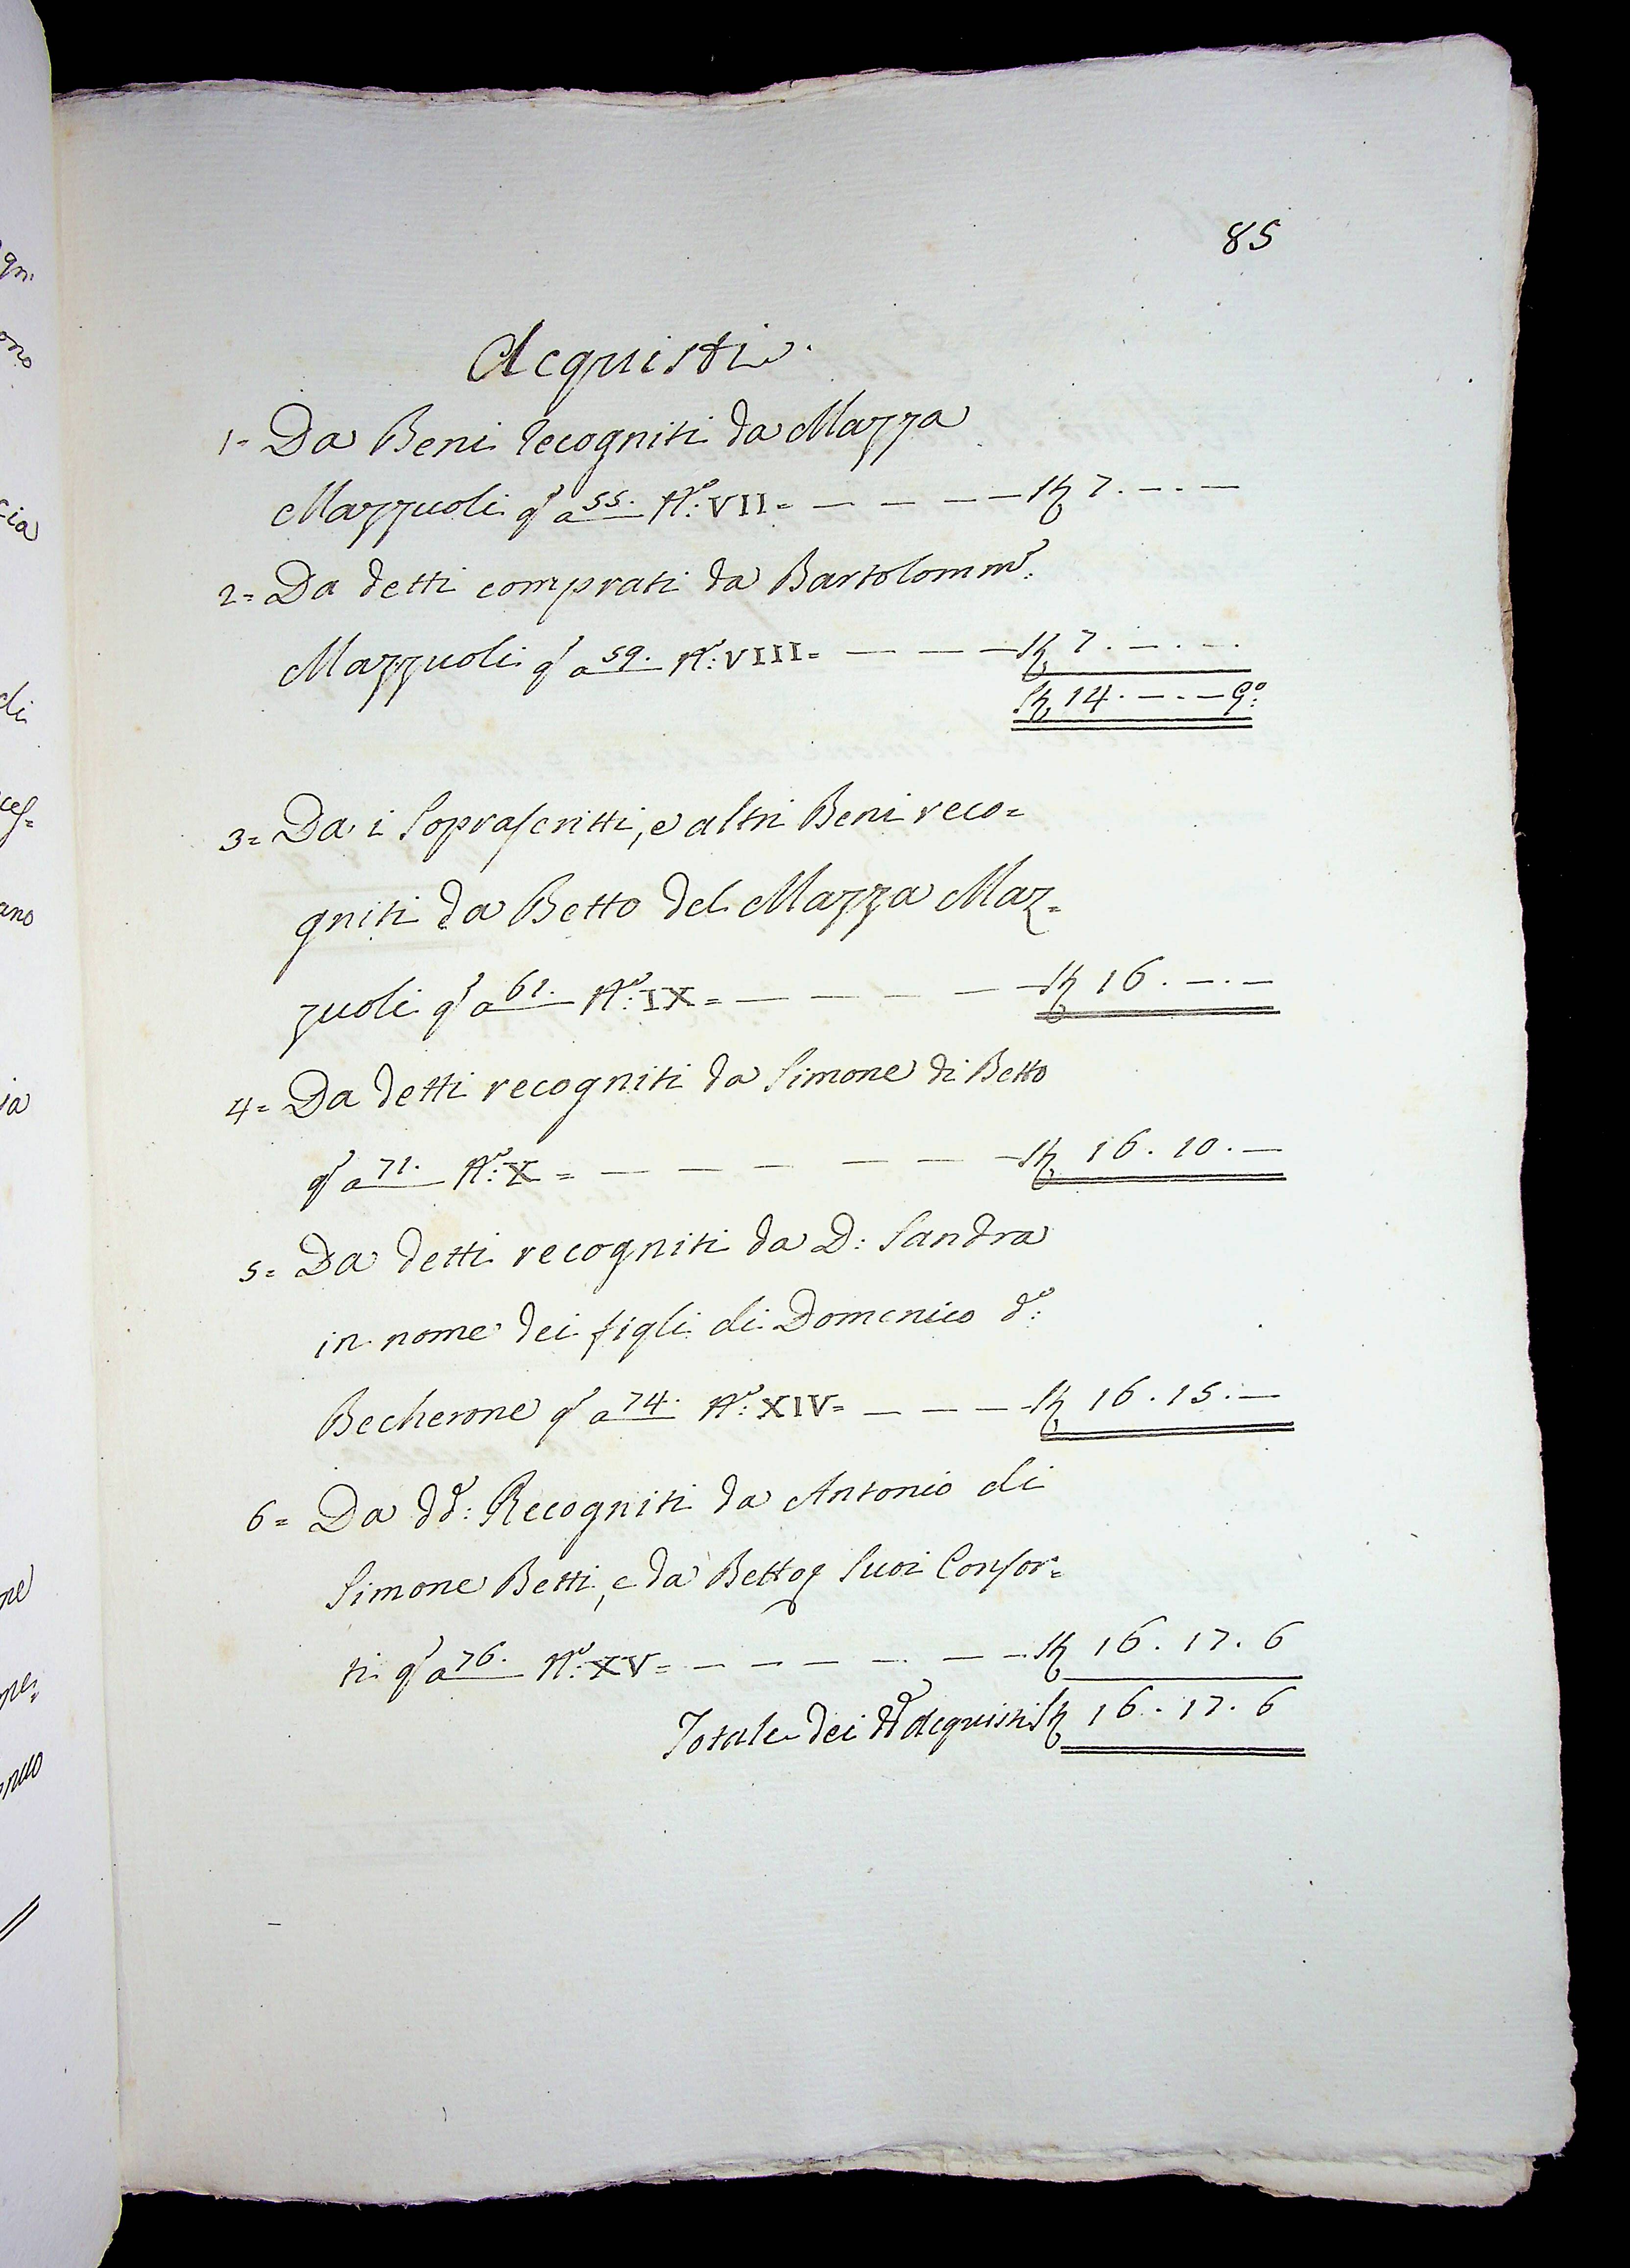 85
Acquisti
1= Da Beni recogniti da Mazza
Mazzuoli q.to a 55. N.o: VII= — — — — — 7. —. —
2= Da detti comprati da Bartolomm.o:
Mazzuoli q.to a 59. N.o: VIII= — — — 7. —. —
14. —. —
3= Da i soprascritti, e altri Beni reco=
gniti da Betto del Mazza Maz=
zuoli q.to a 61. N.o: IX= — — — — — 16. —. —
4= Da detti recogniti da Simone di Betto
q.to a 71. N.o: X= — — — — — — 16. 10. —
5= Da detti recogniti da D: Sandra
in nome dei figli di Domenico d.o:
Becherone q.to a 74. N.o: XIV= — — — 16. 15. —
6= Da dd.i: Recogniti da Antonio di
Simone Betti, e da Betto suoi Consor=
ti q.to a 76. N.o: XV= — — — — — — 16. 17. 6
Totale dei dd.i acquisti 16. 17. 6